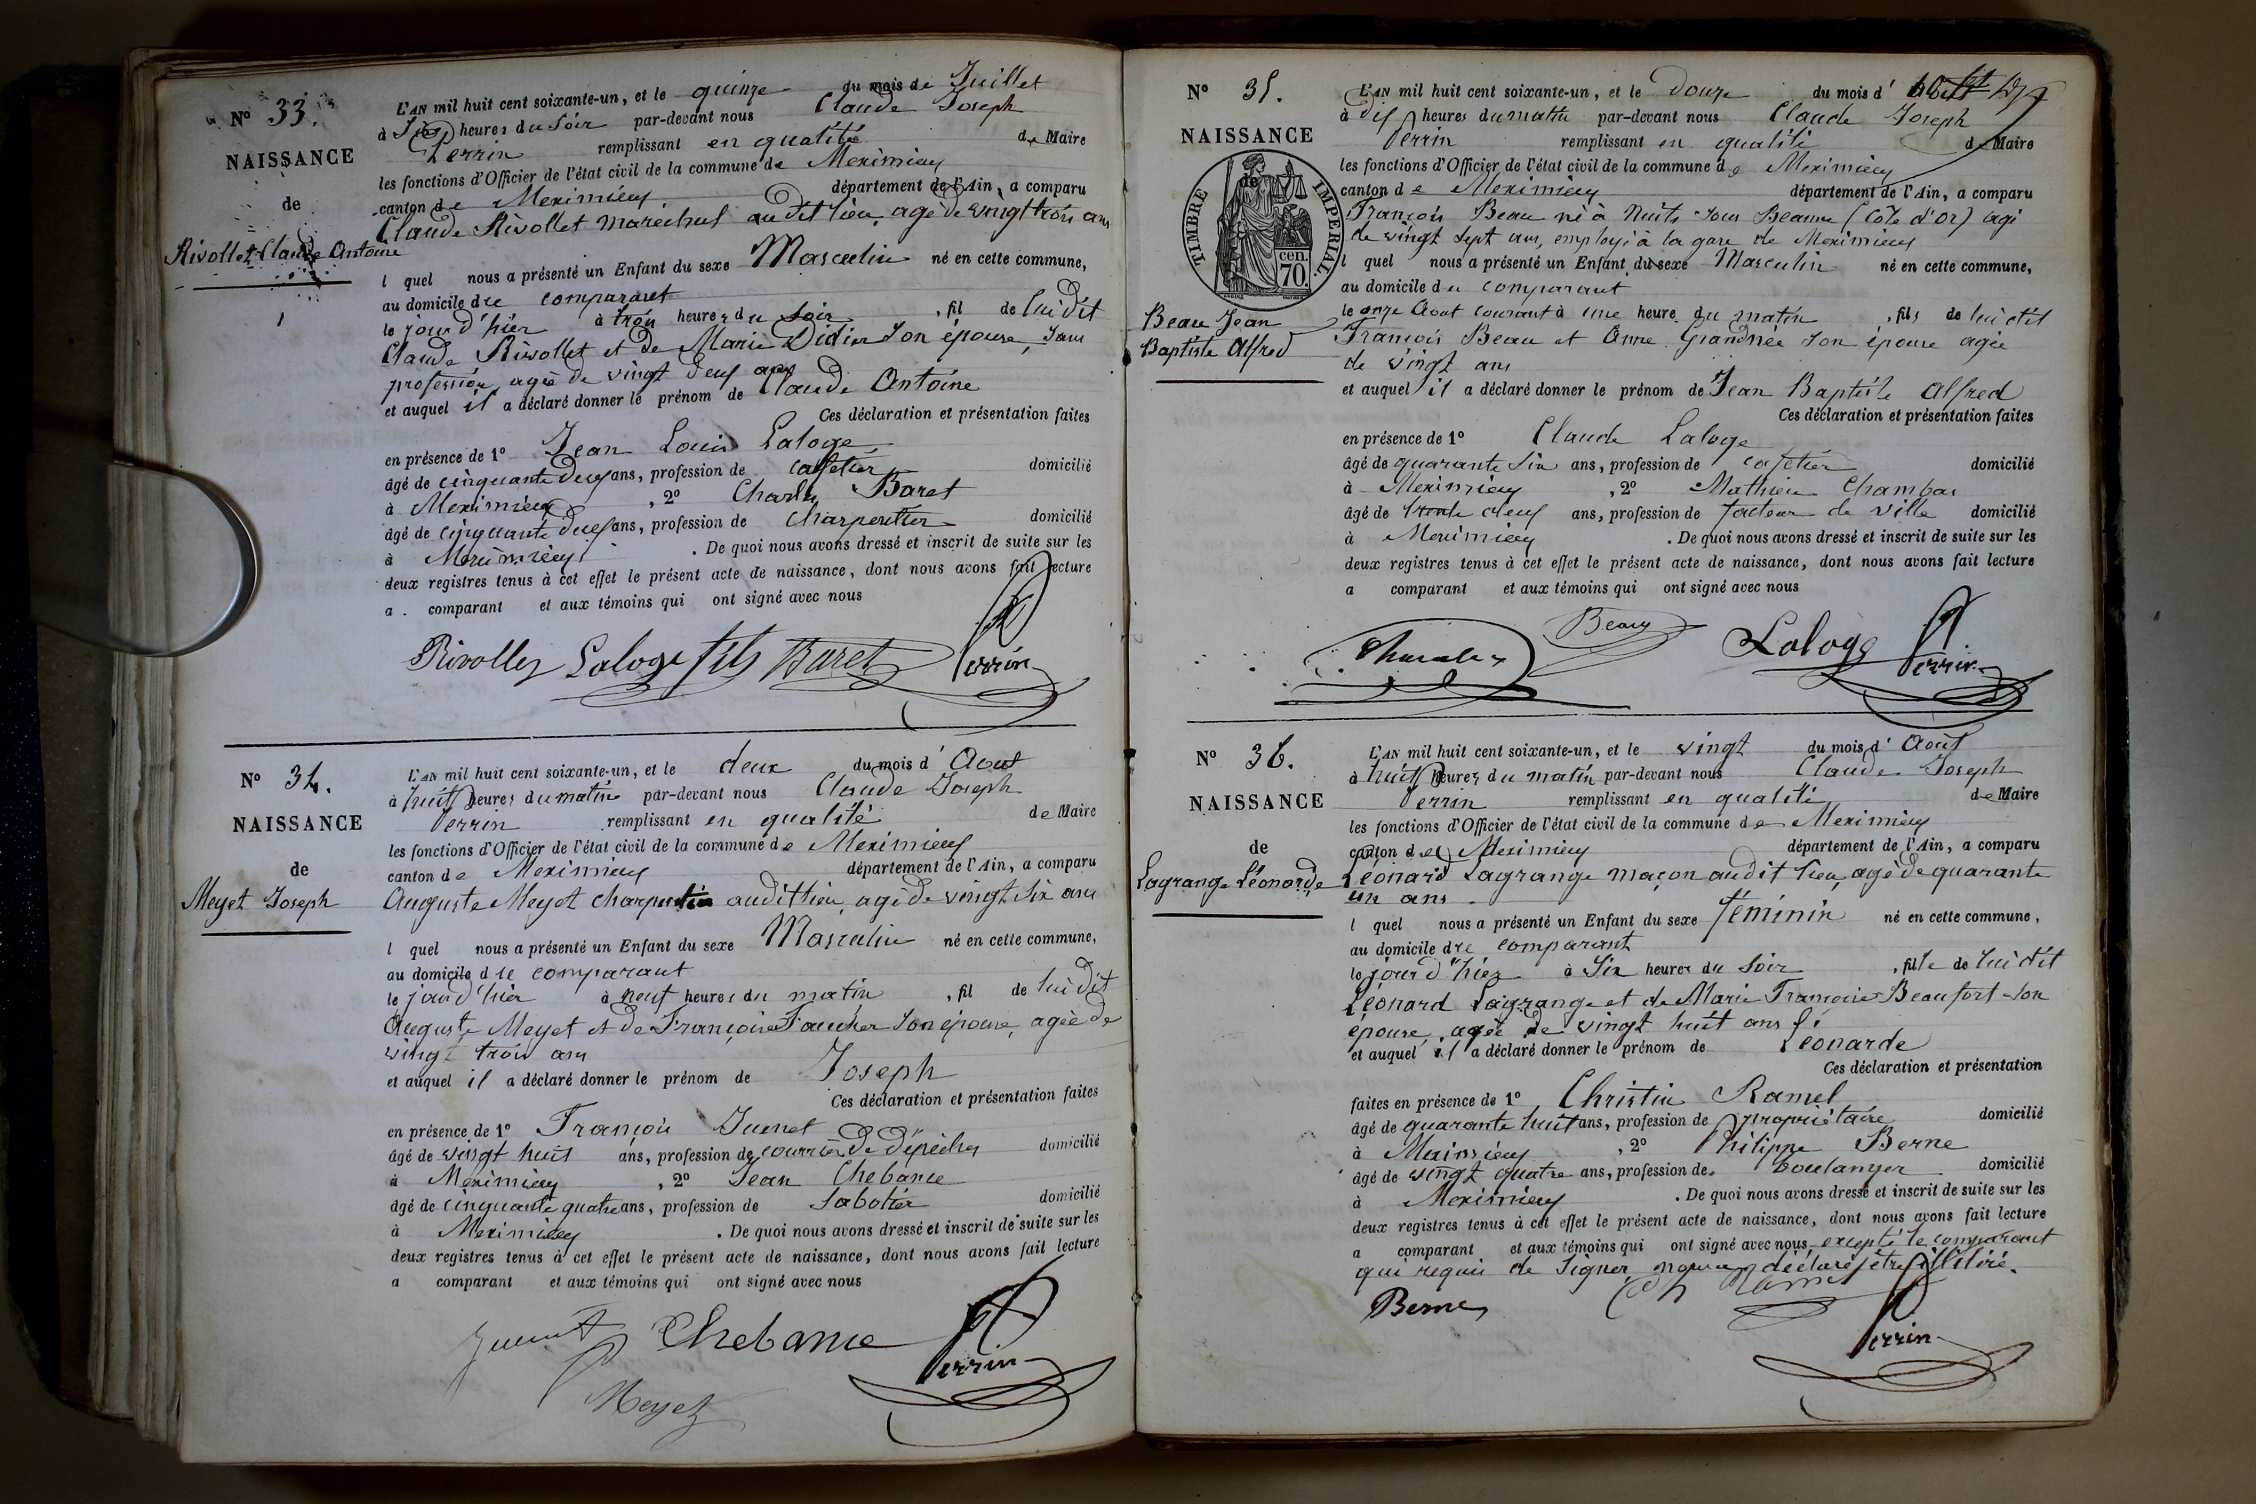 N° 33.
NAISSANCE
de
Rivollet Claude Antoine
L'AN mil huit cent soixante-un, et le quinze du mois de Juillet
à six heures du soir par-devant nous Claude Joseph
Perrin remplissant en qualité de Maire
les fonctions d'Officier de l'état civil de la commune de Meximieux
canton de Meximieux département de l'Ain, a comparu
Claude Rivollet maréchal au dit lieu, agé de vingt trois ans
l quel nous a présenté un Enfant du sexe Masculin né en cette commune,
au domicile du comparant
le jour d'hier à trois heures du soir, fil de lui dit
Claude Rivollet et de Marie Didier son épouse, sans
profession agée de vingt deux ans
et auquel il a déclaré donner le prénom de Claude Antoine
Ces déclaration et présentation faites
en présence de 1° Jean Louis Laloge
âgé de cinquante deux ans, profession de cafetier domicilié
à Meximieux, 2° Charles Baret
âgé de cinquante deux ans, profession de charpentier domicilié
à Meximieux. De quoi nous avons dressé et inscrit de suite sur les
deux registres tenus à cet effet le présent acte de naissance, dont nous avons fait lecture
a comparant et aux témoins qui ont signé avec nous
Rivollet Laloge fils Baret Perrin
N° 34.
NAISSANCE
de
Meyet Joseph
L'AN mil huit cent soixante-un, et le deux du mois d'Aout
à huit heures du matin par-devant nous Claude Joseph
Perrin remplissant en qualité de Maire
les fonctions d'Officier de l'état civil de la commune de Meximieux
canton de Meximieux département de l'Ain, a comparu
Auguste Meyet charpentier audit lieu, agé de vingt six ans
l quel nous a présenté un Enfant du sexe Masculin né en cette commune,
au domicile d le comparant
le jour d'hier à neuf heures du matin, fil de lui dit
Auguste Meyet et de Françoise Faucher son épouse, agée de
vingt trois ans
et auquel il a déclaré donner le prénom de Joseph
Ces déclaration et présentation faites
en présence de 1° François Juenet
âgé de vingt huit ans, profession de courrier de dépèches domicilié
à Meximieux, 2° Jean Chebance
âgé de cinquante quatre ans, profession de sabotier domicilié
à Meximieux. De quoi nous avons dressé et inscrit de suite sur les
deux registres tenus à cet effet le présent acte de naissance, dont nous avons fait lecture
a comparant et aux témoins qui ont signé avec nous
Juenet Chebance Perrin
Meyet
N° 35.
NAISSANCE
de
TIMBRE IMPERIAL.
70 cen.
Beau Jean
Baptiste Alfred
L'AN mil huit cent soixante-un, et le douze du mois d'Aout
à dix heures du matin par-devant nous Claude Joseph
Perrin remplissant en qualité de Maire
les fonctions d'Officier de l'état civil de la commune de Meximieux
canton de Meximieux département de l'Ain, a comparu
François Beau né à Nuits sous Beaune (Côte d'Or) agé
de vingt sept ans, employé à la gare de Meximieux
l quel nous a présenté un Enfant du sexe Masculin né en cette commune,
au domicile du comparant
le onze Aout courant à une heure du matin, fils de lui dit
François Beau et Anne Grandnée son épouse agée
de vingt ans
et auquel il a déclaré donner le prénom de Jean Baptiste Alfred
Ces déclaration et présentation faites
en présence de 1° Claude Laloge
âgé de quarante six ans, profession de cafetier domicilié
à Meximieux, 2° Mathieu Chambas
âgé de trente deux ans, profession de facteur de ville domicilié
à Meximieux. De quoi nous avons dressé et inscrit de suite sur les
deux registres tenus à cet effet le présent acte de naissance, dont nous avons fait lecture
a comparant et aux témoins qui ont signé avec nous
Beau Laloge Perrin
N° 36.
NAISSANCE
de
Lagrange Léonarde
L'AN mil huit cent soixante-un, et le vingt du mois d'Août
à huit heures du matin par-devant nous Claude Joseph
Perrin remplissant en qualité de Maire
les fonctions d'Officier de l'état civil de la commune de Meximieux
canton de Meximieux département de l'Ain, a comparu
Léonard Lagrange maçon audit lieu, agé de quarante
un ans
l quel nous a présenté un Enfant du sexe féminin né en cette commune,
au domicile d le comparant
le jour d'hier à six heures du soir, fille de lui dit
Léonard Lagrange et de Marie Françoise Beaufort son
épouse, agée de vingt huit ans
et auquel il a déclaré donner le prénom de Léonarde
Ces déclaration et présentation
faites en présence de 1° Christin Ramel
âgé de quarante huit ans, profession de propriétaire domicilié
à Meximieux, 2° Philippe Berne
âgé de vingt quatre ans, profession de boulanger domicilié
à Meximieux. De quoi nous avons dressé et inscrit de suite sur les
deux registres tenus à cet effet le présent acte de naissance, dont nous avons fait lecture
a comparant et aux témoins qui ont signé avec nous, excepté le comparant
qui requis de signer, nous a déclaré être illitéré.
Berne Ch Ramel
Perrin